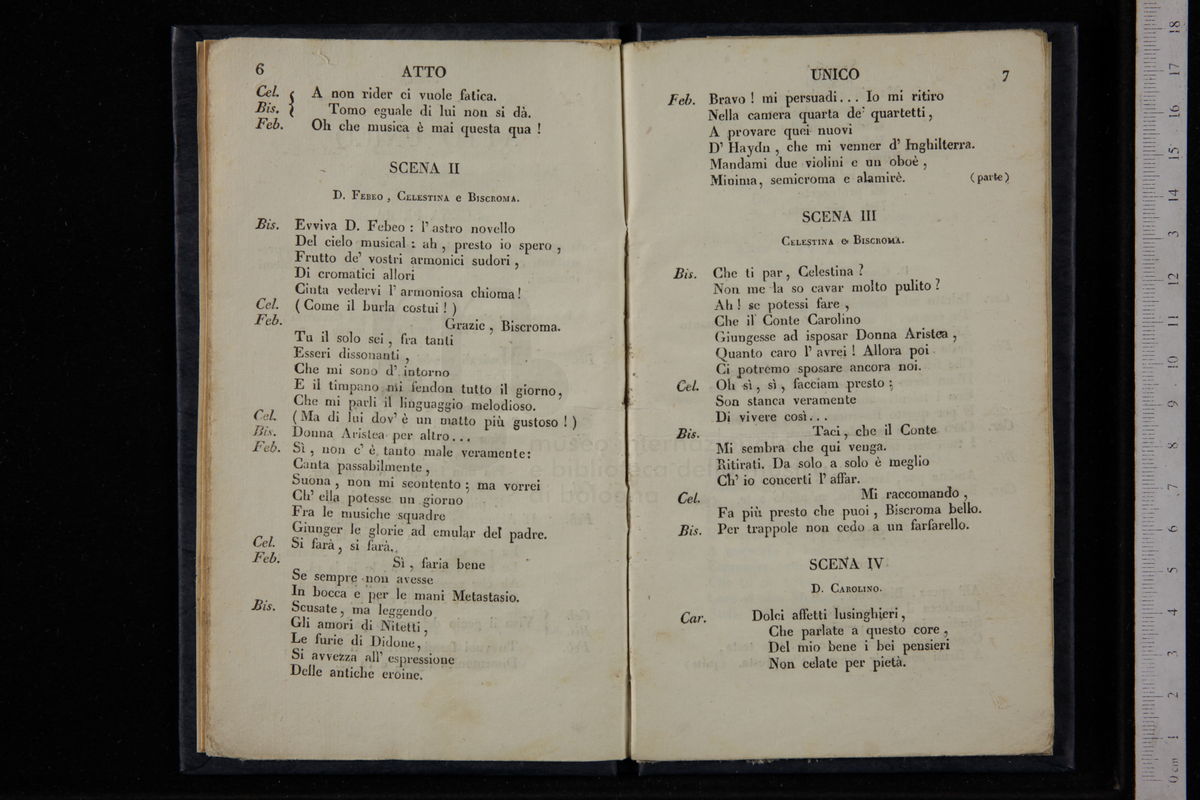 6 ATTO
Cel. { A non rider ci vuole fatica.
Bis. { Tomo eguale di lui non si dà.
Feb. Oh che musica è mai questa qua !
SCENA II
D. FEBEO , CELESTINA e BISCROMA.
Bis. Evviva D. Febeo : l' astro novello
Del cielo musical : ah , presto io spero ,
Frutto de' vostri armonici sudori ,
Di cromatici allori
Cinta vedervi l' armoniosa chioma !
Cel. ( Come il burla costui ! )
Feb. Grazie , Biscroma.
Tu il solo sei , fra tanti
Esseri dissonanti ,
Che mi sono d' intorno
E il timpano mi fendon tutto il giorno,
Che mi parli il linguaggio melodioso.
Cel. ( Ma di lui dov' è un matto più gustoso ! )
Bis. Donna Aristea per altro...
Feb. Sì , non c' è tanto male veramente:
Canta passabilmente ,
Suona , non mi scontento ; ma vorrei
Ch' ella potesse un giorno
Fra le musiche squadre
Giunger le glorie ad emular del padre.
Cel. Si farà, si farà.
Feb. Sì , faria bene
Se sempre non avesse
In bocca e per le mani Metastasio.
Bis. Scusate, ma leggendo
Gli amori di Nitetti,
Le furie di Didone,
Si avvezza all' espressione
Delle antiche eroine.
UNICO 7
Feb. Bravo ! mi persuadi... Io mi ritiro
Nella camera quarta de' quartetti ,
A provare quei nuovi
D' Haydn , che mi venner d' Inghilterra.
Mandami due violini e un oboè ,
Minima, semicroma e alamirè. (parte)
SCENA III
CELESTINA e BISCROMA.
Bis. Che ti par, Celestina ?
Non me la so cavar molto pulito ?
Ah ! se potessi fare ,
Che il Conte Carolino
Giungesse ad isposar Donna Aristea ,
Quanto caro l' avrei ! Allora poi
Ci potremo sposare ancora noi.
Cel. Oh sì , sì , facciam presto ;
Son stanca veramente
Di vivere così...
Bis. Taci, che il Conte
Mi sembra che qui venga.
Ritirati. Da solo a solo è meglio
Ch' io concerti l' affar.
Cel. Mi raccomando ,
Fa più presto che puoi , Biscroma bello.
Bis. Per trappole non cedo a un farfarello.
SCENA IV
D. CAROLINO.
Car. Dolci affetti lusinghieri,
Che parlate a questo core ,
Del mio bene i bei pensieri
Non celate per pietà.